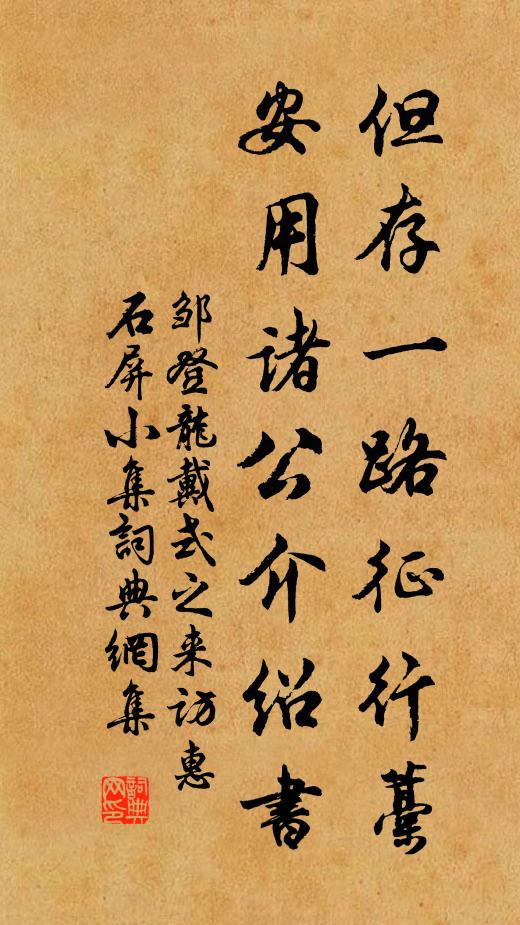 但存一路征行藁
安用诸公介绍書
邹登龍戴式之来访惠
石屏小集詞典網集
詞典网印